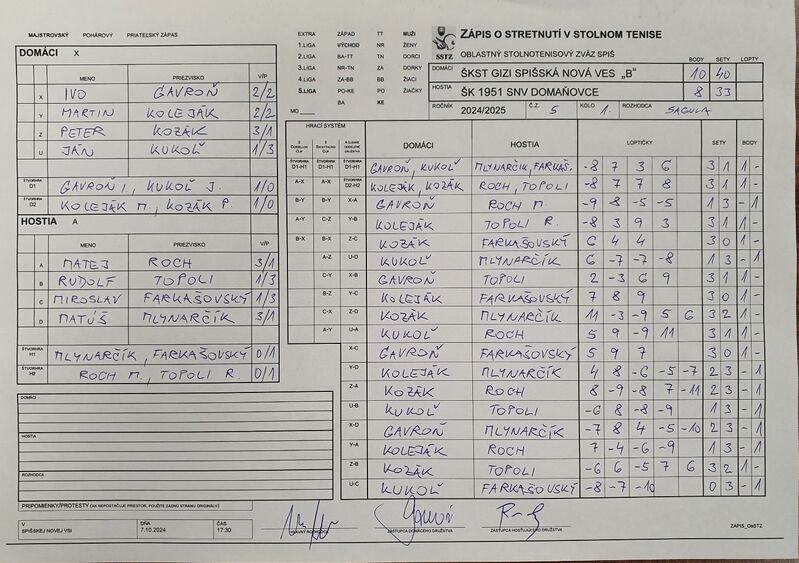 MAJSTROVSKÝ POHÁROVÝ PRIATEĽSKÝ ZÁPAS
EXTRA ZÁPAD TT MUŽI
1.LIGA VÝCHOD NR ŽENY
2.LIGA BA-TT TN DORCI
3.LIGA NR-TN ZA DORKY
4.LIGA ZA-BB BB ŽIACI
5.LIGA PO-KE PO ŽIAČKY
BA KE
MO
SSTZ
ZÁPIS O STRETNUTÍ V STOLNOM TENISE
OBLASTNÝ STOLNOTENISOVÝ ZVÄZ SPIŠ
BODY SETY LOPTY
DOMÁCI ŠKST GIZI SPIŠSKÁ NOVÁ VES „B" 10 40
HOSTIA ŠK 1951 SNV DOMAŇOVCE 8 33
ROČNÍK 2024/2025 Č.Z. 5 KOLO 1. ROZHODCA SAGULA
DOMÁCI X
MENO PRIEZVISKO V/P
X IVO GAVROŇ 2/2
Y MARTIN KOLEJÁK 2/2
Z PETER KOZÁK 3/1
U JÁN KUKOĽ 1/3
ŠTVORHRA D1 GAVROŇ I, KUKOĽ J. 1/0
ŠTVORHRA D2 KOLEJÁK M., KOZÁK P 1/0
HOSTIA A
MENO PRIEZVISKO V/P
A MATEJ ROCH 3/1
B RUDOLF TOPOLI 1/3
C MIROSLAV FARKAŠOVSKÝ 1/3
D MATÚŠ MLYNARČÍK 3/1
ŠTVORHRA H1 MLYNARČÍK, FARKAŠOVSKÝ 0/1
ŠTVORHRA H2 ROCH M., TOPOLI R. 0/1
DOMÁCI
HOSTIA
ROZHODCA
PRIPOMIENKY/PROTESTY (AK NEPOSTAČUJE PRIESTOR, POUŽITE ZADNÚ STRANU ORIGINÁLU)
V SPIŠSKEJ NOVEJ VSI DŇA 7.10.2024 ČAS 17:30
HRACÍ SYSTÉM DOMÁCI HOSTIA LOPTIČKY SETY BODY
ŠTVORHRA D1-H1 ŠTVORHRA D1-H1 ŠTVORHRA D1-H1 GAVROŇ, KUKOĽ MLYNARČÍK, FARKAŠ. -8 7 3 6 3 1 1 -
A-X A-X ŠTVORHRA D2-H2 KOLEJÁK, KOZÁK ROCH, TOPOLI -8 7 7 8 3 1 1 -
B-Y B-Y X-A GAVROŇ ROCH M. -9 8 -5 -5 1 3 - 1
A-Y C-Z Y-B KOLEJÁK TOPOLI R. -8 3 9 3 3 1 1 -
B-X B-X Z-C KOZÁK FARKAŠOVSKÝ 6 4 4 3 0 1 -
A-Z U-D KUKOĽ MLYNARČÍK 6 -7 -7 -8 1 3 - 1
C-Y X-B GAVROŇ TOPOLI 2 -3 6 9 3 1 1 -
B-Z Y-C KOLEJÁK FARKAŠOVSKÝ 7 8 9 3 0 1 -
C-X Z-D KOZÁK MLYNARČÍK 11 -3 -9 5 6 3 2 1 -
A-Y U-A KUKOĽ ROCH 5 9 -9 11 3 1 1 -
X-C GAVROŇ FARKAŠOVSKÝ 5 9 7 3 0 1 -
Y-D KOLEJÁK MLYNARČÍK 4 8 -6 -5 -7 2 3 - 1
Z-A KOZÁK ROCH 8 -9 -8 7 -11 2 3 - 1
U-B KUKOĽ TOPOLI -6 8 -8 -9 1 3 - 1
X-D GAVROŇ MLYNARČÍK -7 8 4 -5 -10 2 3 - 1
Y-A KOLEJÁK ROCH 7 -4 -6 -9 1 3 - 1
Z-B KOZÁK TOPOLI -6 6 -5 7 6 3 2 1 -
U-C KUKOĽ FARKAŠOVSKÝ -8 -7 -10 0 3 - 1
ZÁSTUPCA DOMÁCEHO DRUŽSTVA ZÁSTUPCA HOSŤUJÚCEHO DRUŽSTVA
ZAPIS_ObSTZ